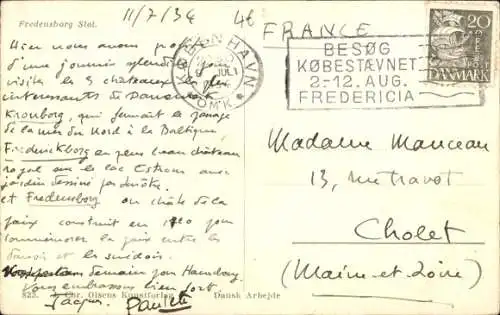 Fredensborg Slot.
11/7/34
4£
FRANCE
KØBENHAVN
OMK
BESØG
KØBESTÆVNET
2-12. AUG.
FREDERICIA
20
DANMARK
Hier nous avons profité
d'une journée splendide pour
visiter les 3 châteaux les plus
intéressants de Danemark
Kronborg, qui fermait le passage
de la mer du Nord à la Baltique,
Frederickborg un peu beau château
royal sur le lac Estrom avec
jardin dessiné
et Fredensborg ou château de la
paix construit en 1720 pour
commémorer la paix entre les
danois et les suédois.
demain pour Hambourg.
Vous embrassons bien fort
Jacques Paulette
Madame Manceau
13, rue Travot
Cholet
(Maine et Loire)
825. Chr. Olsens Kunstforlag Dansk Arbejde